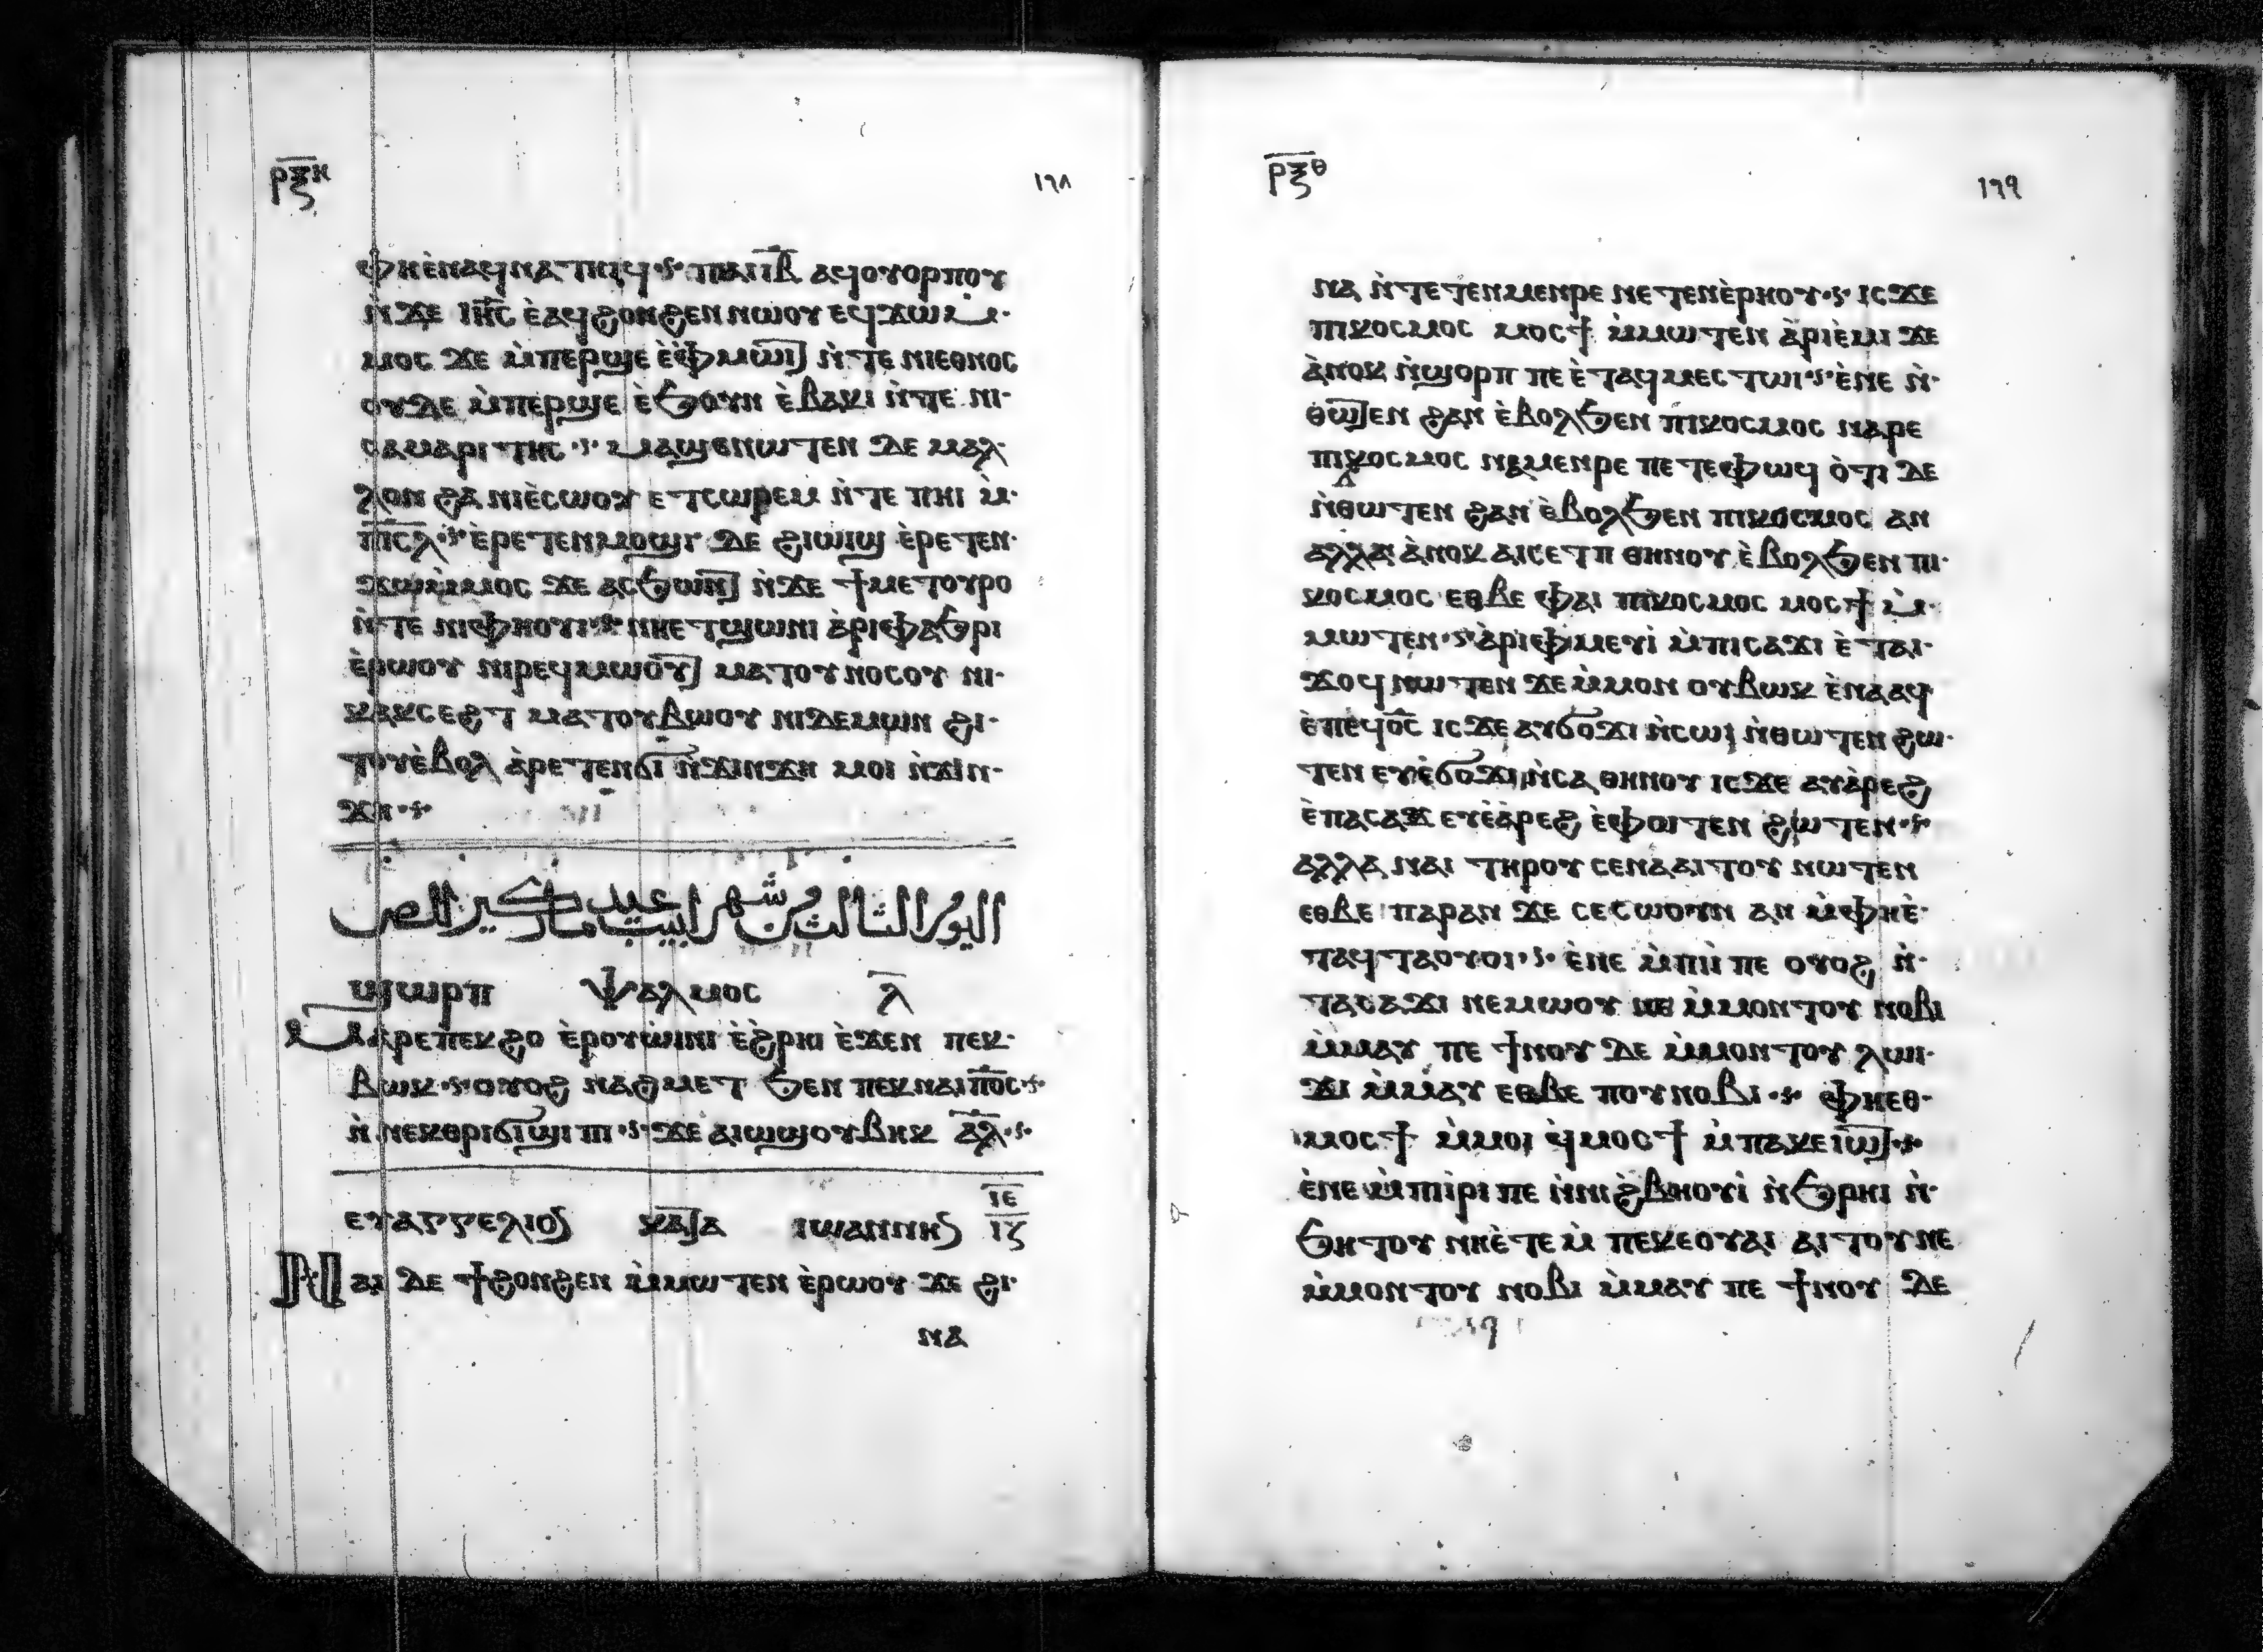 ⲣⲝⲏ
١٦٨
ⲫⲏⲉ̀ⲛⲁϥⲛⲁⲧⲏⲓϥ ⲡⲁⲓⲓ̅ⲃ̅ ⲁϥⲟⲩⲟⲣⲡⲟⲩ
ⲛ̀ϫⲉ ⲓⲏ̅ⲥ̅ ⲉ̀ⲁϥϩⲟⲛϩⲉⲛ ⲛⲱⲟⲩ ⲉϥϫⲱⲙ̀
ⲙⲟⲥ ϫⲉ ⲙ̀ⲡⲉⲣϣⲉ ⲉ̀ⲫⲙⲱⲓⲧ ⲛ̀ⲧⲉ ⲛⲓⲉⲑⲛⲟⲥ
ⲟⲩⲇⲉ ⲙ̀ⲡⲉⲣϣⲉ ⲉ̀ϧⲟⲩⲛ ⲉ̀ⲃⲁⲕⲓ ⲛ̀ⲧⲉ ⲛⲓ
ⲥⲁⲙⲁⲣⲓⲧⲏⲥ ⲙⲁϣⲉⲛⲱⲧⲉⲛ ⲇⲉ ⲙⲁⲗ
ⲗⲟⲛ ϩⲁ ⲛⲓⲉ̀ⲥⲱⲟⲩ ⲉⲧⲥⲱⲣⲉⲙ ⲛ̀ⲧⲉ ⲡⲏⲓ ⲙ̀
ⲡⲓ̅ⲥ̅ⲗ̅ ⲉ̀ⲣⲉⲧⲉⲛⲙⲟϣⲓ ⲇⲉ ϩⲓⲱⲓϣ ⲉ̀ⲣⲉⲧⲉⲛ
ϫⲱⲙ̀ⲙⲟⲥ ϫⲉ ⲁⲥϧⲱⲛⲧ ⲛ̀ϫⲉ ϯⲙⲉⲧⲟⲩⲣⲟ
ⲛ̀ⲧⲉ ⲛⲓⲫⲏⲟⲩⲓ ⲛⲏⲉⲧϣⲱⲛⲓ ⲁ̀ⲣⲓⲫⲁϧⲣⲓ
ⲉ̀ⲣⲱⲟⲩ ⲛⲓⲣⲉϥⲙⲱⲟⲩⲧ ⲙⲁⲧⲟⲩⲛⲟⲥⲟⲩ ⲛⲓ
ⲕⲁⲕⲥⲉϩⲧ ⲙⲁⲧⲟⲩⲃⲱⲟⲩ ⲛⲓⲇⲉⲙⲱⲛ ϩⲓ
ⲧⲟⲩⲉ̀ⲃⲟⲗ ⲁ̀ⲣⲉⲧⲉⲛϭⲓ ⲛ̀ϫⲓⲛϫⲏ ⲙⲟⲓ ⲛ̀ϫⲓⲛ
ϫⲏ
اليوم الثالث من شهر ابيب عيد مار كير الص
ϣⲱⲣⲡ ⲯⲁⲗⲙⲟⲥ ⲗ̅
ⲙⲁⲣⲉⲡⲉⲕϩⲟ ⲉ̀ⲣⲟⲩⲱⲓⲛⲓ ⲉ̀ϩ̀ⲣⲏⲓ ⲉ̀ϫⲉⲛ ⲡⲉⲕ
ⲃⲱⲕ ⲟⲩⲟϩ ⲛⲁϩⲙⲉⲧ ϧⲉⲛ ⲡⲉⲕⲛⲁⲓ ⲡⲟ̅ⲥ̅
ⲛ̀ⲛⲉⲕⲑⲣⲓϭⲓϣⲓⲡⲓ ϫⲉ ⲁⲓⲱϣⲟⲩⲃⲏⲕ ⲁ̅ⲗ̅
ⲉⲩⲁⲅⲅⲉⲗⲓⲟⲥ ⲕⲁⲧⲁ ⲓⲱⲁⲛⲛⲏⲥ ⲓ̅ⲉ̅ ⲓ̅ⲍ̅
ⲛⲁⲓ ⲇⲉ ϯϩⲟⲛϩⲉⲛ ⲙ̀ⲙⲱⲧⲉⲛ ⲉ̀ⲣⲱⲟⲩ ϫⲉ ϩⲓ
ⲛⲁ
ⲣⲝⲑ
١٦٩
ⲛⲁ ⲛ̀ⲧⲉⲧⲉⲛⲙⲉⲛⲣⲉ ⲛⲉⲧⲉⲛⲉ̀ⲣⲏⲟⲩ ⲓⲥϫⲉ
ⲡⲓⲕⲟⲥⲙⲟⲥ ⲙⲟⲥϯ ⲙ̀ⲙⲱⲧⲉⲛ ⲁ̀ⲣⲓⲉ̀ⲙⲓ ϫⲉ
ⲁ̀ⲛⲟⲕ ⲛ̀ϣⲟⲣⲡ ⲡⲉ ⲉ̀ⲧⲁϥⲙⲉⲥⲧⲱⲓ ⲉ̀ⲛⲉ ⲛ̀
ⲑⲱⲧⲉⲛ ϩⲁⲛ ⲉ̀ⲃⲟⲗϧⲉⲛ ⲡⲓⲕⲟⲥⲙⲟⲥ ⲛⲁⲣⲉ
ⲡⲓⲕⲟⲥⲙⲟⲥ ⲛⲁⲙⲉⲛⲣⲉ ⲡⲉⲧⲉⲫⲱϥ ⲟ̀ⲧⲓ ⲇⲉ
ⲛ̀ⲑⲱⲧⲉⲛ ϩⲁⲛ ⲉ̀ⲃⲟⲗϧⲉⲛ ⲡⲓⲕⲟⲥⲙⲟⲥ ⲁⲛ
ⲁⲗⲗⲁ ⲁ̀ⲛⲟⲕ ⲁⲓⲥⲉⲧⲡ ⲑⲏⲛⲟⲩ ⲉ̀ⲃⲟⲗϧⲉⲛ ⲡⲓ
ⲕⲟⲥⲙⲟⲥ ⲉⲑⲃⲉ ⲫⲁⲓ ⲡⲓⲕⲟⲥⲙⲟⲥ ⲙⲟⲥϯ ⲙ̀
ⲙⲱⲧⲉⲛ ⲁ̀ⲣⲓⲫⲙⲉⲩⲓ̀ ⲙ̀ⲡⲓⲥⲁϫⲓ ⲉ̀ⲧⲁⲓ
ϫⲟϥ ⲛⲱⲧⲉⲛ ϫⲉ ⲙ̀ⲙⲟⲛ ⲟⲩⲃⲱⲕ ⲉ̀ⲛⲁⲁϥ
ⲉ̀ⲡⲉϥⲟ̅ⲥ̅ ⲓⲥϫⲉ ⲁⲩϭⲟϫⲓ ⲛ̀ⲥⲱⲓ ⲛ̀ⲑⲱⲧⲉⲛ ϩⲱ
ⲧⲉⲛ ⲉⲩⲉ̀ϭⲟϫⲓ ⲛ̀ⲥⲁ ⲑⲏⲛⲟⲩ ⲓⲥϫⲉ ⲁⲩⲁ̀ⲣⲉϩ
ⲉ̀ⲡⲁⲥⲁϫⲓ ⲉⲩⲉ̀ⲁ̀ⲣⲉϩ ⲉ̀ⲫⲱⲧⲉⲛ ϩⲱⲧⲉⲛ
ⲁⲗⲗⲁ ⲛⲁⲓ ⲧⲏⲣⲟⲩ ⲥⲉⲛⲁⲁⲓⲧⲟⲩ ⲛⲱⲧⲉⲛ
ⲉⲑⲃⲉ ⲡⲁⲣⲁⲛ ϫⲉ ⲥⲉⲥⲱⲟⲩⲛ ⲁⲛ ⲙ̀ⲫⲏⲉ̀
ⲧⲁϥⲧⲁⲟⲩⲟⲓ ⲉ̀ⲛⲉ ⲙ̀ⲡⲓⲓ̀ ⲡⲉ ⲟⲩⲟϩ ⲛ̀
ⲧⲁⲥⲁϫⲓ ⲛⲉⲙⲱⲟⲩ ⲛⲉ ⲙ̀ⲙⲟⲛⲧⲟⲩ ⲛⲟⲃⲓ
ⲙ̀ⲙⲁⲩ ⲡⲉ ϯⲛⲟⲩ ⲇⲉ ⲙ̀ⲙⲟⲛⲧⲟⲩ ⲗⲱⲓ
ϫⲓ ⲙ̀ⲙⲁⲩ ⲉⲑⲃⲉ ⲡⲟⲩⲛⲟⲃⲓ ⲫⲏⲉⲑ
ⲙⲟⲥϯ ⲙ̀ⲙⲟⲓ ϥ̀ⲙⲟⲥϯ ⲙ̀ⲡⲁⲕⲉⲓⲱⲧ
ⲉ̀ⲛⲉ ⲙ̀ⲡⲓⲓ̀ⲣⲓ ⲡⲉ ⲛ̀ⲛⲓϩ̀ⲃⲏⲟⲩⲓ̀ ⲛ̀ϧⲣⲏⲓ ⲛ̀
ϧⲏⲧⲟⲩ ⲛⲏⲉ̀ⲧⲉⲙ̀ ⲡⲉⲕⲉⲟⲩⲁⲓ ⲁⲓⲧⲟⲩ ⲛⲉ
ⲙ̀ⲙⲟⲛⲧⲟⲩ ⲛⲟⲃⲓ ⲙ̀ⲙⲁⲩ ⲡⲉ ϯⲛⲟⲩ ⲇⲉ